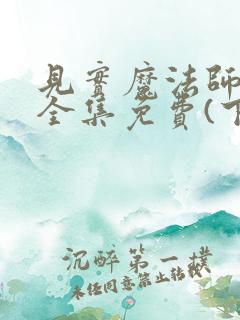 見實魔法師
全集免費(下
沉醉第一樸
未経同意禁止转载